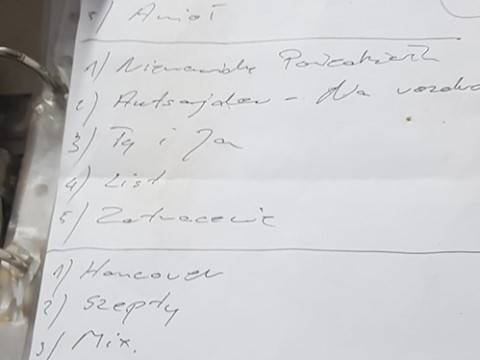 5) Anioł
1) Nienawidzę Poniedziałków
2) Autsajder - Na
3) Ty i Ja
4) List
5) Zatracenie
1) Hancover
2) Szepty
3) Mix.